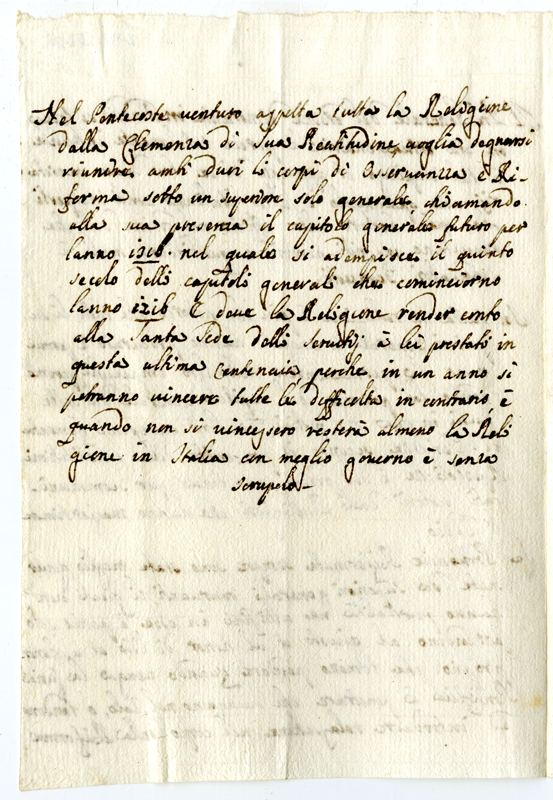 Nel Pentecoste venturo aspetta tutta la Religione
dalla Clemenza di Sua Beatitudine voglia degnarsi
riunire ambi duri li corpi di Osservanza e Ri-
forma sotto un superiore solo generale, chiamando
alla sua presenza il capitolo generale futuro per
lanno 1716. nel quale si adempisce il quinto
secolo delli capitoli generali che cominciorno
lanno 1216 E deve la Religione render conto
alla Santa Sede delli servitij à lei prestati in
questa ultima Centenaia, perche in un anno si
potranno vincere tutte le difficolta in contrario, è
quando non si vincessero resterà almeno la Reli
gione in Italia con meglio governo è senza
scrupolo